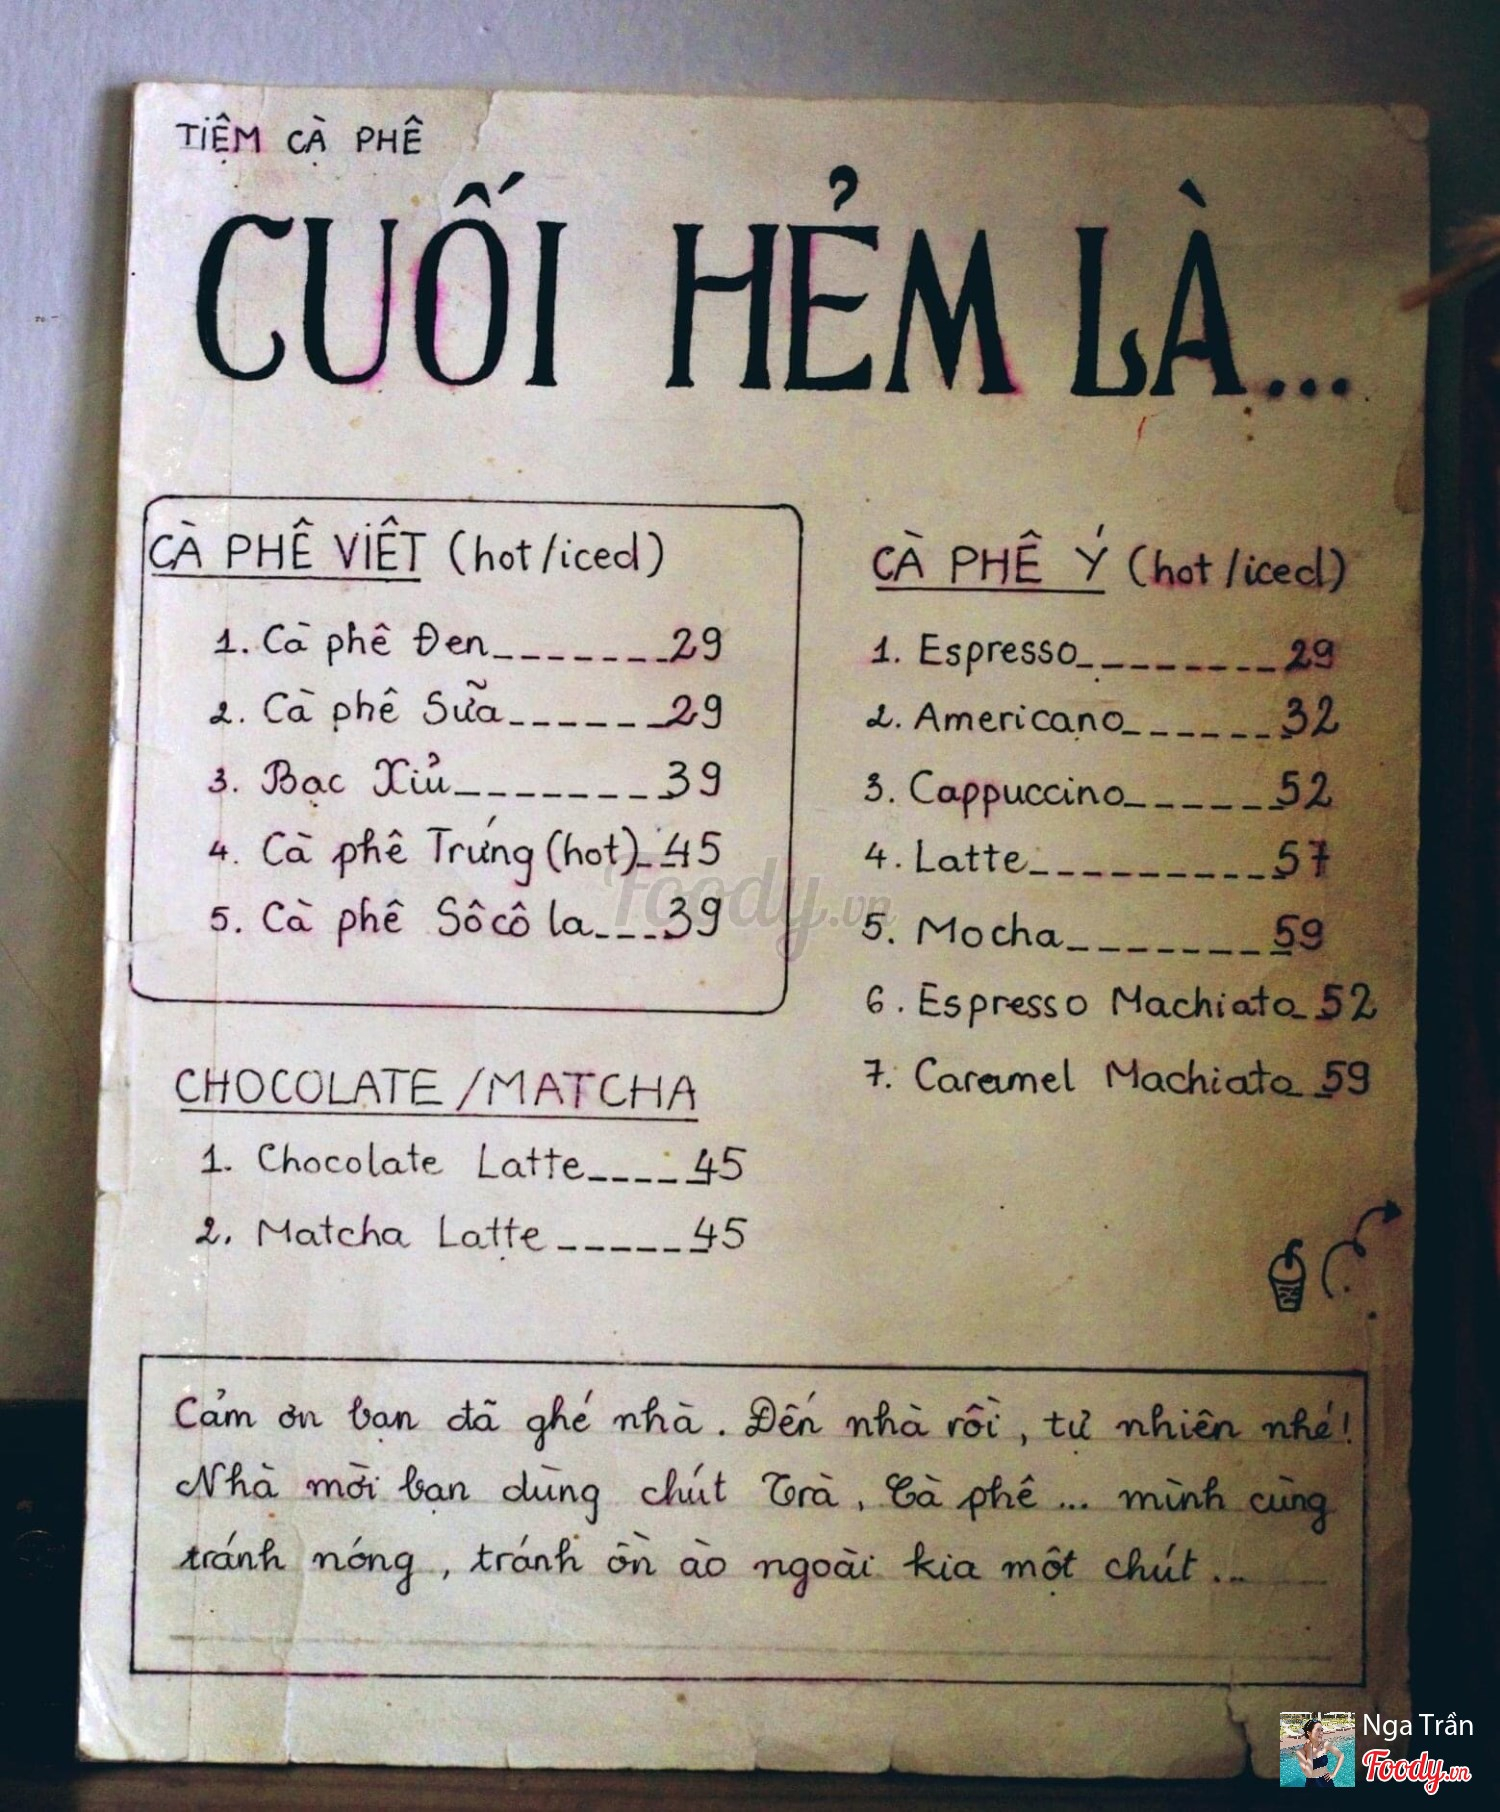 TIỆM CÀ PHÊ
CUỐI HẺM LÀ...
CÀ PHÊ VIỆT (hot/iced)
1. Cà phê Đen_______29
2. Cà phê Sữa______29
3. Bạc Xỉu________39
4. Cà phê Trứng (hot)__45
5. Cà phê Sôcôla____39
CHOCOLATE/MATCHA
1. Chocolate Latte_____45
2. Matcha Latte______45
CÀ PHÊ Ý (hot/iced)
1. Espresso________29
2. Americano_______32
3. Cappuccino______52
4. Latte__________57
5. Mocha________59
6. Espresso Machiato_52
7. Caramel Machiato_59
Cảm ơn bạn đã ghé nhà. Đến nhà rồi, tự nhiên nhé!
Nhà mời bạn dùng chút Trà, Cà phê ... mình cùng
tránh nóng, tránh ồn ào ngoài kia một chút...
Foody.vn
Nga Trần
Foody.vn